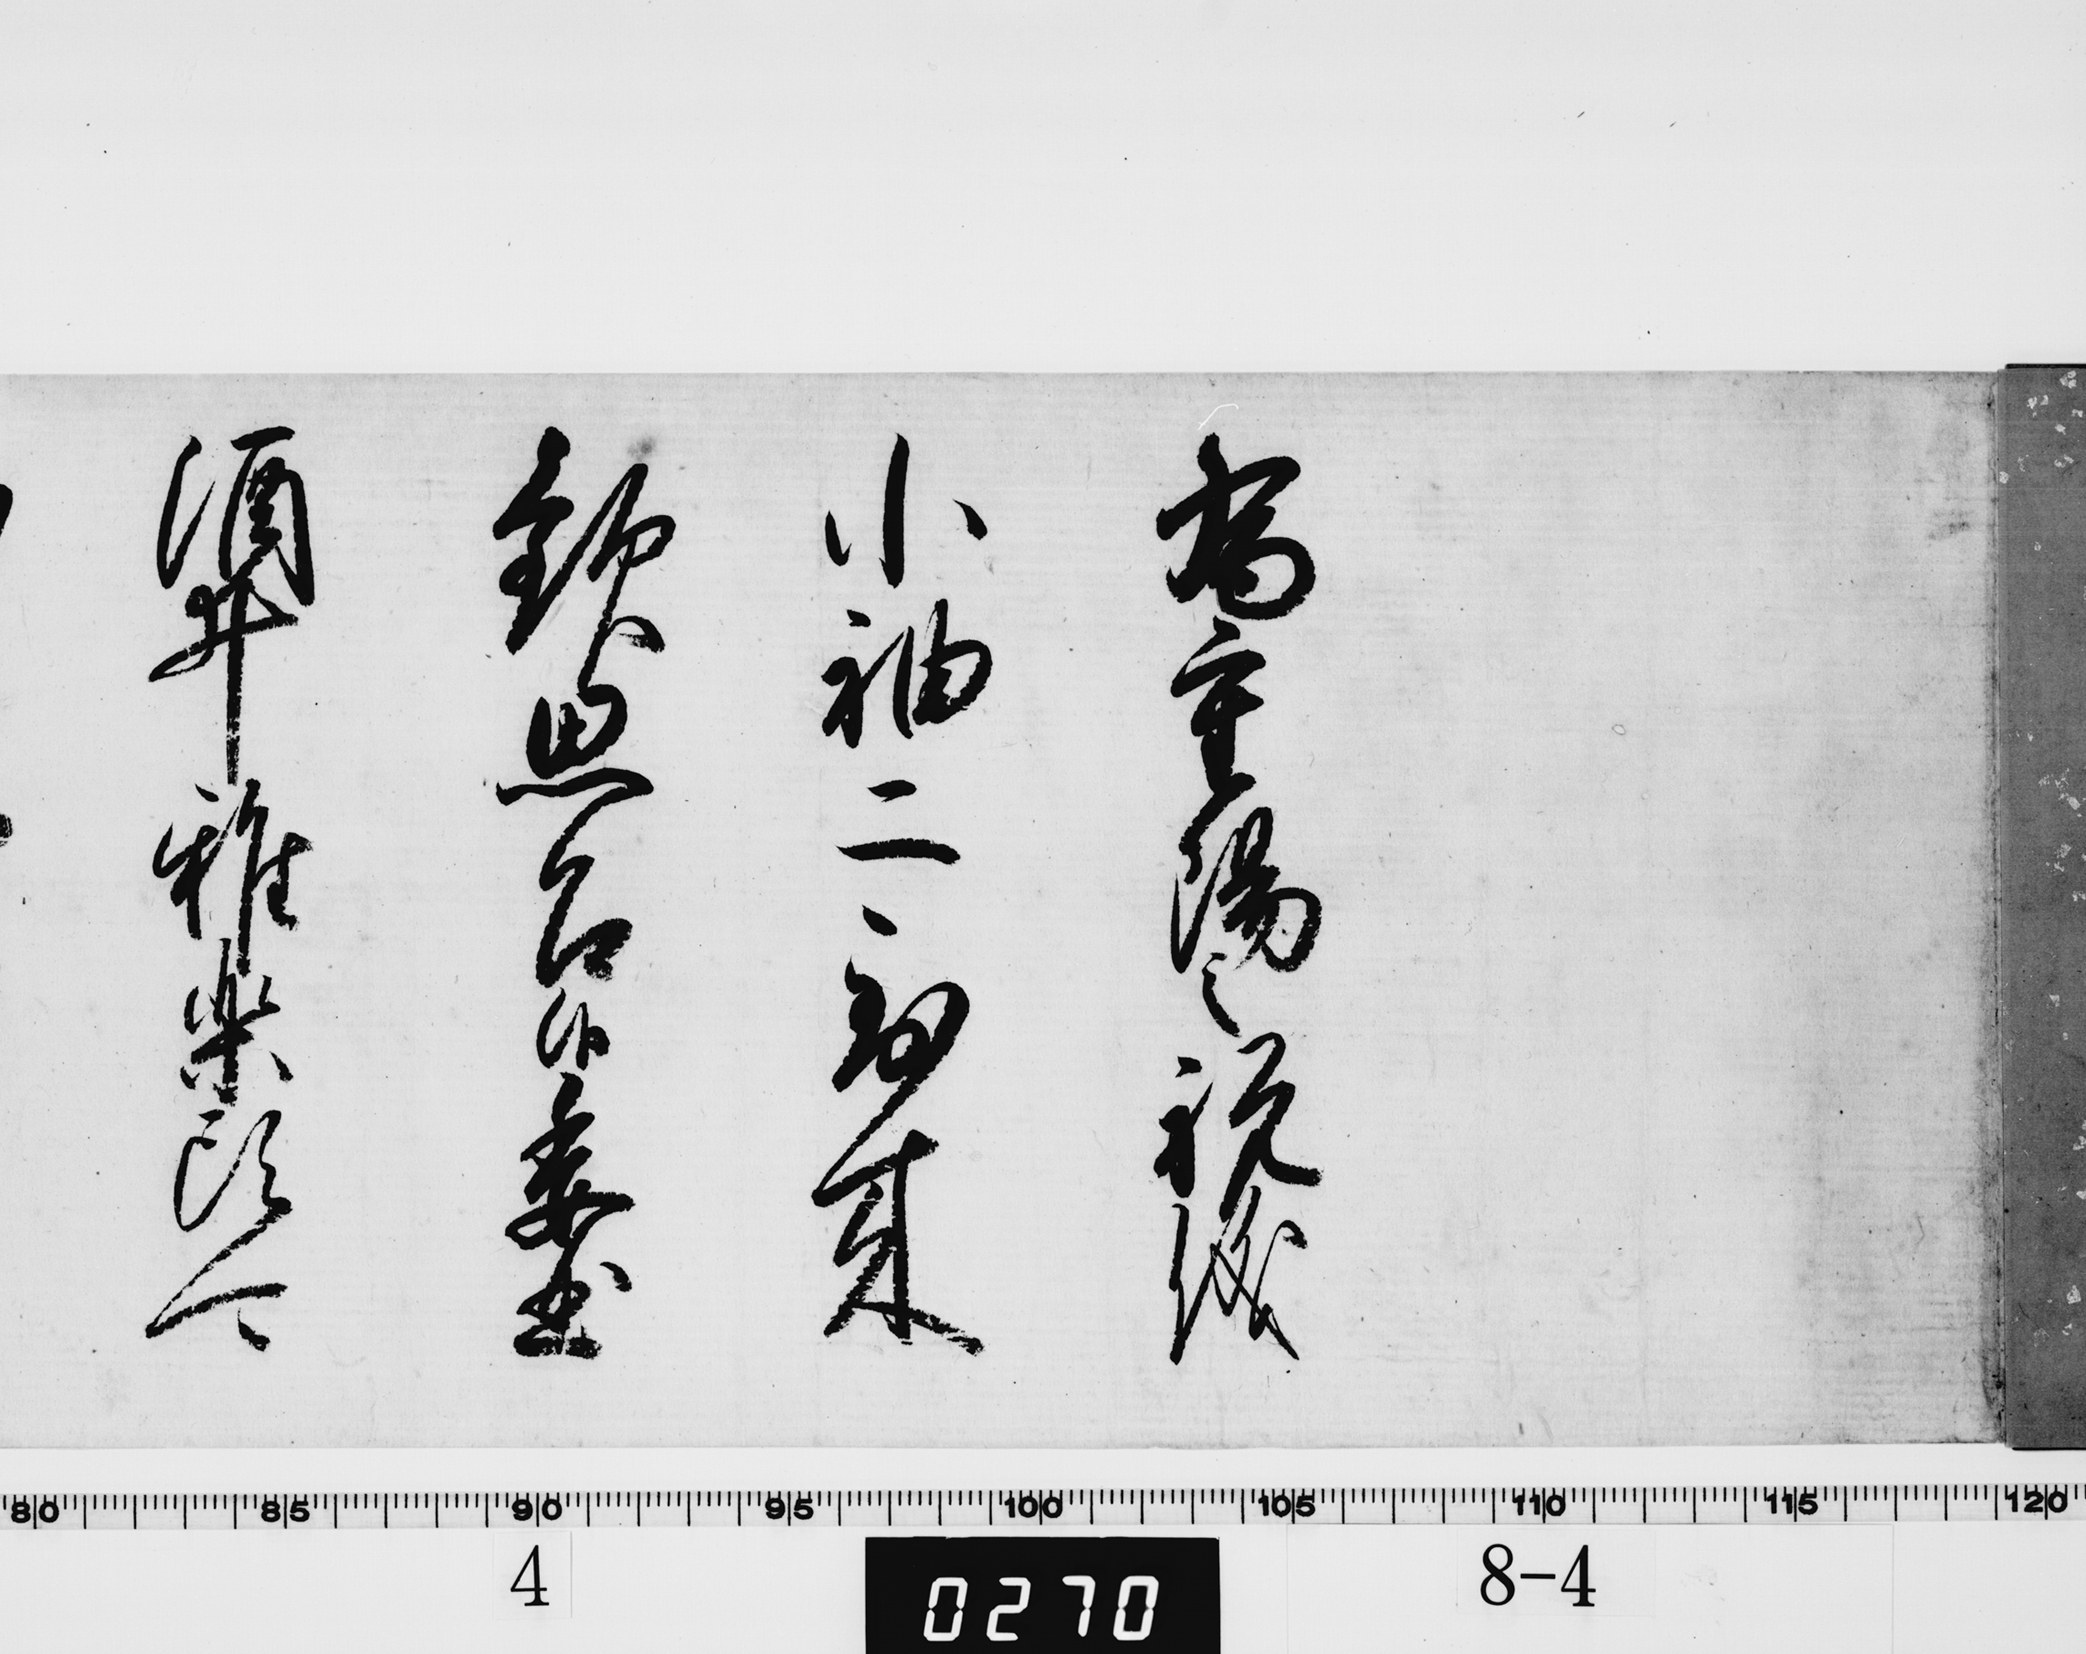 為重陽之祝儀
小袖二到来
歓思召候委曲
酒井雅楽頭可
80 85 90 95 100 105 110 115 120
4
0270
8-4